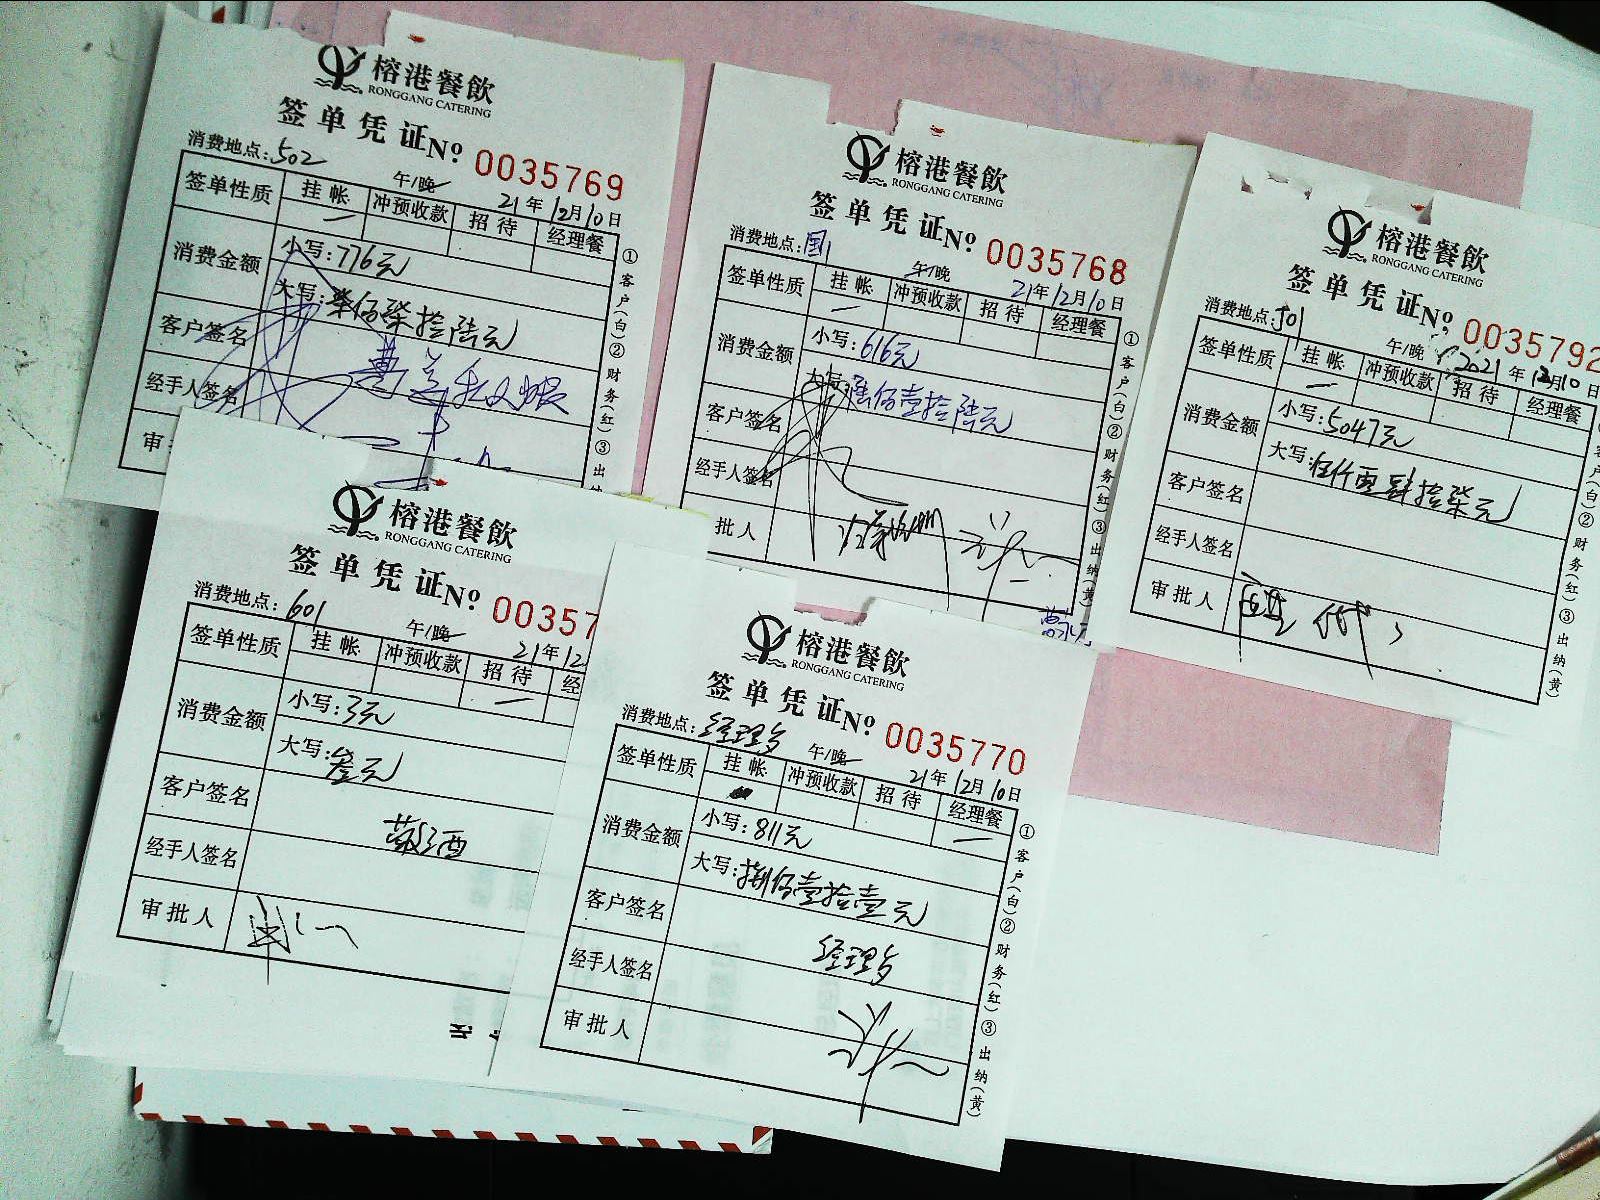 榕港餐飲
RONGGANG CATERING
签单凭证 Nº 0035769
消费地点:502 午/晚 21年12月10日
签单性质 挂帐 冲预收款 招待 经理餐
消费金额 小写:776元
大写:柒佰柒拾陆元
客户签名
经手人签名
审
①客户(白)②财务(红)③出纳
榕港餐飲
RONGGANG CATERING
签单凭证 Nº 0035768
消费地点:国1 午/晚 21年12月10日
签单性质 挂帐 冲预收款 招待 经理餐
消费金额 小写:616元
大写:陆佰壹拾陆元
客户签名
经手人签名
批人
①客户(白)②财务(红)③出纳(黄)
榕港餐飲
RONGGANG CATERING
签单凭证 Nº 0035792
消费地点:501 午/晚 2021年12月10日
签单性质 挂帐 冲预收款 招待 经理餐
消费金额 小写:5047元
大写:伍仟零肆拾柒元
客户签名
经手人签名
审批人
客户(白)②财务(红)③出纳(黄)
榕港餐飲
RONGGANG CATERING
签单凭证 Nº 00357
消费地点:601 午/晚 21年12
签单性质 挂帐 冲预收款 招待 经
消费金额 小写:3元
大写:叁元
客户签名
经手人签名
审批人
榕港餐飲
RONGGANG CATERING
签单凭证 Nº 0035770
消费地点:经理餐 午/晚 21年12月10日
签单性质 挂帐 冲预收款 招待 经理餐
消费金额 小写:811元
大写:捌佰壹拾壹元
客户签名
经理餐
经手人签名
审批人
①客户(白)②财务(红)③出纳(黄)